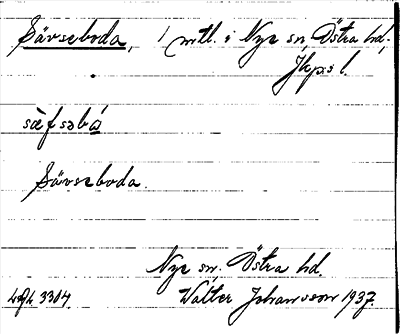 Sävseboda, 1 mtl. i Nye sn, Östra hd.
Jkps l.
sæ̀fsəbá
Sävseboda.
Nye sn, Östra hd.
3304. Walter Johansson 1937